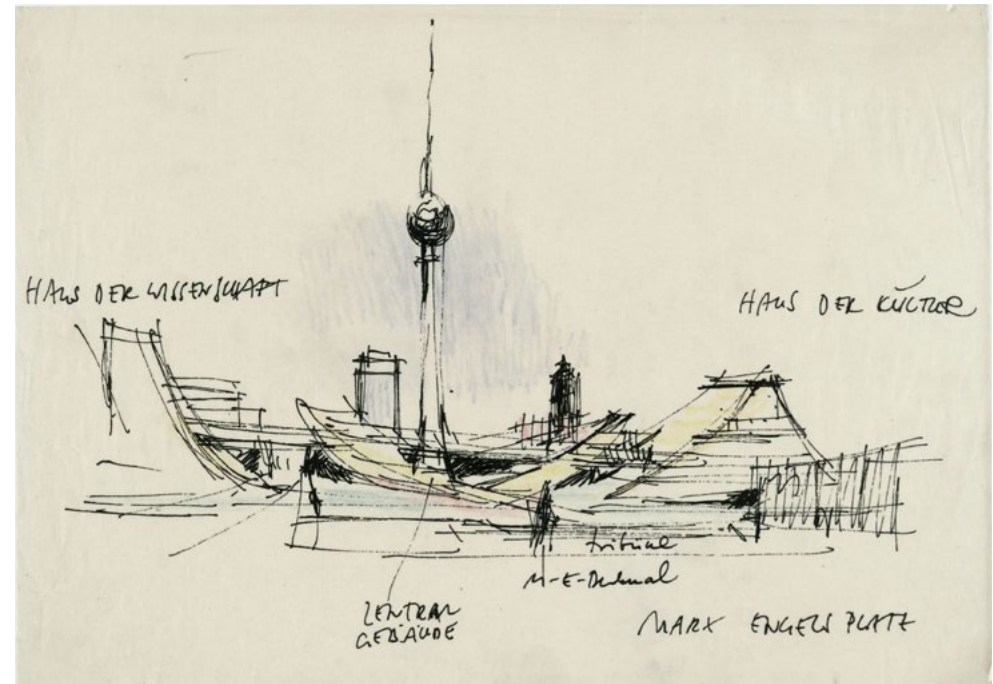 HAUS DER WISSENSCHAFT
HAUS DER KULTUR
Tribüne
M-E-Denkmal
ZENTRAL
GEBÄUDE
MARX ENGELS PLATZ